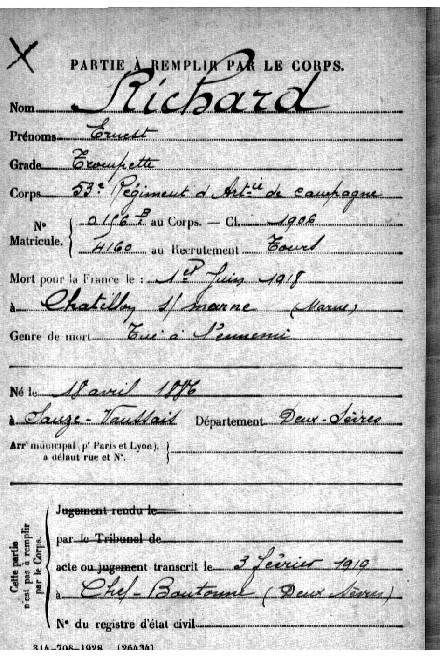 PARTIE À REMPLIR PAR LE CORPS.
Nom Richard
Prénoms Ernest
Grade Trompette
Corps 53e Régiment d'Artie de campagne
N° Matricule. { 0116 B au Corps. — Cl. 1906
4160 au Recrutement Tours
Mort pour la France le : 1er Juin 1918
à Chatillon s/ marne (Marne)
Genre de mort Tué à l'ennemi
Né le 18 avril 1886
à Sauzé-Vaussais Département Deux-Sèvres
Arrt municipal (pr Paris et Lyon),
à défaut rue et N°.
Cette partie n'est pas à remplir par le Corps.
Jugement rendu le
par le Tribunal de
acte ou jugement transcrit le 3 février 1919
à Chef-Boutonne (Deux Sèvres)
N° du registre d'état civil